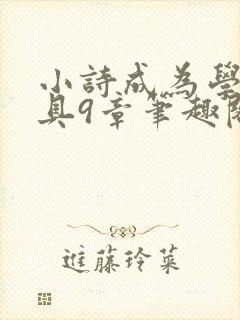 小詩成為學
具9章筆趣閣
進藤玲菜